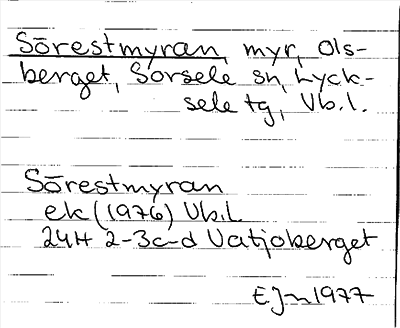 Sörestmyran, myr, Ols-
berget, Sorsele sn, Lyck-
sele tg, Vb.l.
Sörestmyran
ek (1976) Vb.l
24H 2-3c-d Vatjoberget
EJn 1977